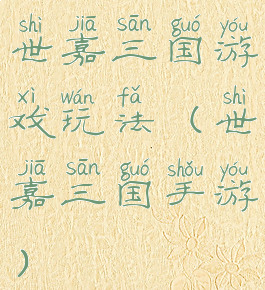 shì jiā sān guó yóu
世嘉三国游
xì wán fǎ shì
戏玩法(世
jiā sān guó shǒu yóu
嘉三国手游
)